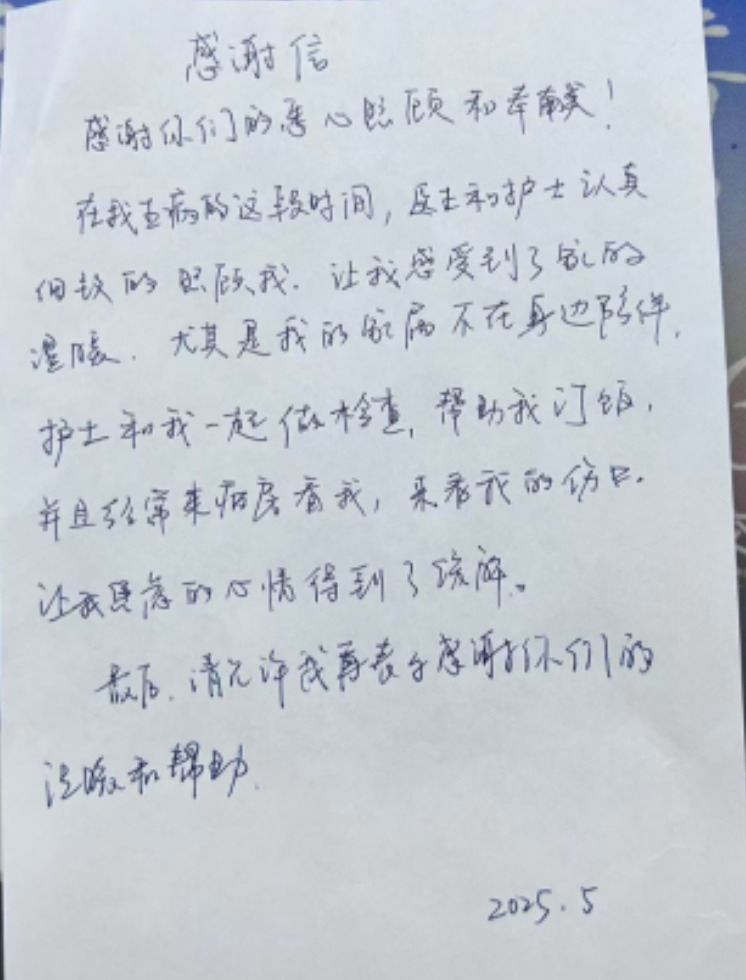 感谢信
感谢你们的悉心照顾和奉献！
在我生病的这段时间，医生和护士认真
细致的照顾我.让我感受到了家的
温暖.尤其是我的家属不在身边陪伴,
护士和我一起做检查,帮助我订饭,
并且经常来病房看我,来看我的伤口.
让我焦虑的心情得到了缓解。
最后.请允许我再表示感谢你们的
和帮助.
2025.5